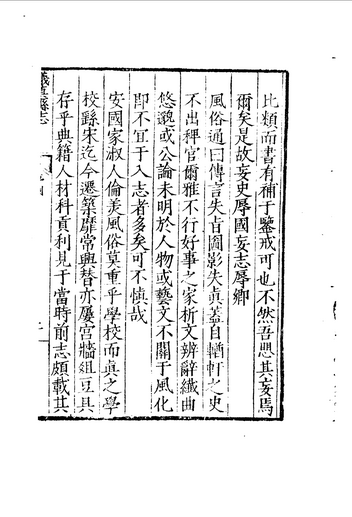 比類而書有補于鑒戒可也不然吾恐其妄焉
爾矣是故妄史辱國妄志辱鄉
風俗通曰傳言失旨圖影失眞蓋自輶軒之史
不出稗官爾雅不行好事之家析文辨辭纖曲
悠邈或公論未明於人物或藝文不關于風化
即不宜于入志者多矣可不慎哉
安國家淑人倫美風俗莫重乎學校而眞之學
校繇宋迄今遷築靡常興替亦屢宮牆俎豆具
存乎典籍人材科貢利見于當時前志頗載其
儀眞縣志